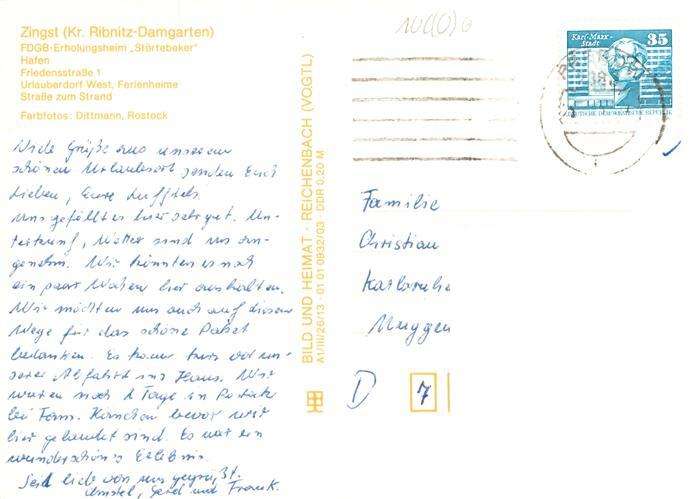 Zingst (Kr. Ribnitz-Damgarten)
FDGB-Erholungsheim „Störtebeker"
Hafen
Friedensstraße 1
Urlauberdorf West, Ferienheime
Straße zum Strand
Farbfotos: Dittmann, Rostock
Viele Grüße aus unserem
schönen Urlaubsort senden Euch
Lieben, Eure
Uns gefällt es hier sehr gut. Un-
terkunft, Wetter sind uns an-
genehm. Wir könnten es noch
ein paar Wochen hier aushalten.
Wir möchten uns auch auf diesem
Wege für das schöne Paket
bedanken. Es kam kurz vor un-
serer Abfahrt ins Haus. Wir
waren noch 2 Tage in
bei Fam. bevor wir
hier gelandet sind. Es war ein
wunderschönes Erlebnis.
Seid lieb von uns gegrüßt.
Gerd und Frank.
BILD UND HEIMAT · REICHENBACH (VOGTL)
A1/III/26/13 01 01 0932/03 DDR 0,20 M
Karl-Marx-
Stadt
35
DEUTSCHE DEMOKRATISCHE REPUBLIK
Familie
Christian
Karlsruhe
D 7